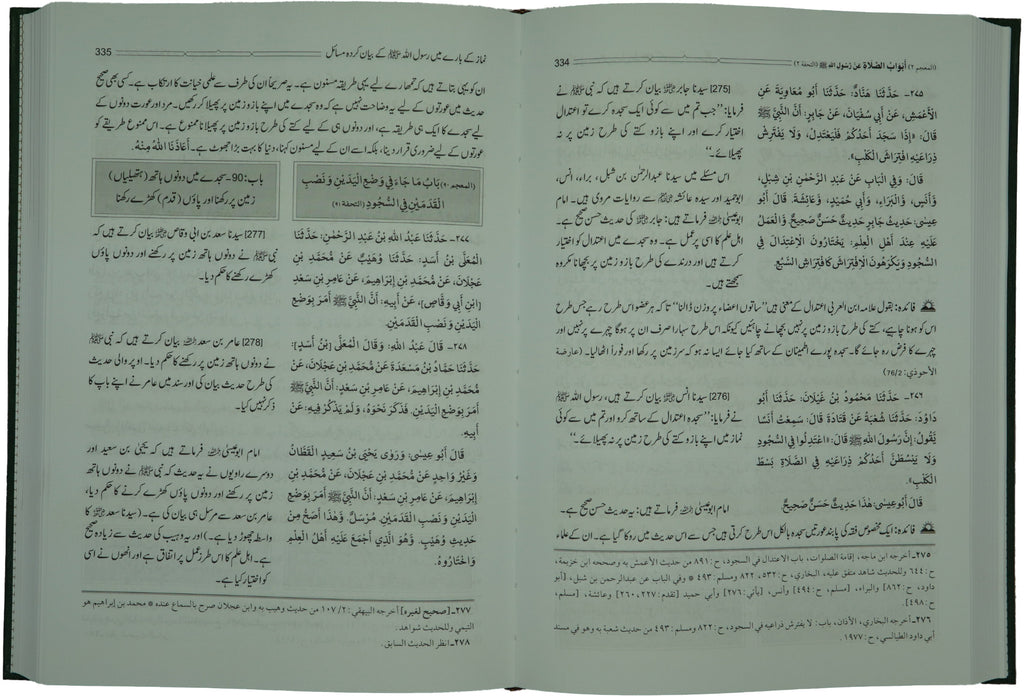 (المعجم ٢) أَبْوَابُ الصَّلَاةِ عَنْ رَسُولِ اللهِ ﷺ (التحفة ٢)
334
٢٧٥- حَدَّثَنَا هَنَّادٌ: حَدَّثَنَا أَبُو مُعَاوِيَةَ عَنِ
الْأَعْمَشِ، عَنْ أَبِي سُفْيَانَ، عَنْ جَابِرٍ: أَنَّ النَّبِيَّ ﷺ
قَالَ: «إِذَا سَجَدَ أَحَدُكُمْ فَلْيَعْتَدِلْ، وَلَا يَفْتَرِشْ
ذِرَاعَيْهِ افْتِرَاشَ الْكَلْبِ».
قَالَ: وَفِي الْبَابِ عَنْ عَبْدِ الرَّحْمَنِ بْنِ شِبْلٍ،
وَأَنَسٍ، وَالْبَرَاءِ، وَأَبِي حُمَيْدٍ، وَعَائِشَةَ. قَالَ أَبُو
عِيسَى: حَدِيثُ جَابِرٍ حَدِيثٌ حَسَنٌ صَحِيحٌ وَالْعَمَلُ
عَلَيْهِ عِنْدَ أَهْلِ الْعِلْمِ: يَخْتَارُونَ الِاعْتِدَالَ فِي
السُّجُودِ وَيَكْرَهُونَ الِافْتِرَاشَ كَافْتِرَاشِ السَّبُعِ.
[275] سیدنا جابر ؓ بیان کرتے ہیں کہ نبی ﷺ نے
فرمایا: ’’جب تم میں سے کوئی ایک سجدہ کرے تو اعتدال
اختیار کرے اور اپنے بازو کتے کی طرح زمین پر نہ
پھیلائے۔‘‘
اس مسئلے میں سیدنا عبدالرحمن بن شبل، براء، انس،
ابوحمید اور سیدہ عائشہ ؓ سے روایات مروی ہیں۔ امام
ابوعیسیٰ ؒ فرماتے ہیں: جابر ؓ کی حدیث حسن صحیح ہے۔
اہل علم کا اسی پر عمل ہے۔ وہ سجدے میں اعتدال کو اختیار
کرتے ہیں اور درندے کی طرح بازو زمین پر بچھانا مکروہ
سمجھتے ہیں۔
فائدہ: بقول علامہ ابن العربی اعتدال کے معنی ہیں ’’ساتوں اعضاء پر وزن ڈالنا‘‘ تاکہ ہر عضو اس طرح رہے جس طرح
اس کو ہونا چاہیے، کتے کی طرح بازو زمین پر نہیں بچھانے چاہئیں کیونکہ اس طرح سہارا صرف ان پر ہوگا چہرے پر نہیں اور
چہرے کا فرض رہ جائے گا۔ سجدہ پورے اطمینان کے ساتھ کیا جائے ایسا نہ ہو کہ سر زمین پر رکھا اور فوراً اٹھالیا۔ (عارضة
الأحوذي: 76/2)
٢٧٦- حَدَّثَنَا مَحْمُودُ بْنُ غَيْلَانَ: حَدَّثَنَا أَبُو
دَاوُدَ: حَدَّثَنَا شُعْبَةُ عَنْ قَتَادَةَ قَالَ: سَمِعْتُ أَنَسًا
يَقُولُ: إِنَّ رَسُولَ اللهِ ﷺ قَالَ: «اعْتَدِلُوا فِي السُّجُودِ
وَلَا يَبْسُطَنَّ أَحَدُكُمْ ذِرَاعَيْهِ فِي الصَّلَاةِ بَسْطَ
الْكَلْبِ».
قَالَ أَبُو عِيسَى: هَذَا حَدِيثٌ حَسَنٌ صَحِيحٌ.
[276] سیدنا انس ؓ بیان کرتے ہیں، رسول اللہ ﷺ
نے فرمایا: ’’سجدہ اعتدال کے ساتھ کرو اور تم میں سے کوئی
نماز میں اپنے بازو کتے کی طرح زمین پر نہ پھیلائے۔‘‘
امام ابوعیسیٰ ؒ فرماتے ہیں: یہ حدیث حسن صحیح ہے۔
فائدہ: ایک مخصوص فقہ کی پابند عورتیں سجدہ بالکل اس طرح کرتی ہیں جس سے حدیث میں روکا گیا ہے۔ ان کے علماء
٢٧٥- أخرجه ابن ماجه، إقامة الصلوات، باب الاعتدال في السجود، ح: ٨٩١ من حديث الأعمش به وصححه ابن خزيمة،
ح: ٦٤٤ وللحديث شاهد متفق عليه، البخاري، ح: ٥٣٢، ٨٢٢ ومسلم: ٤٩٣ * وفي الباب عن عبدالرحمن بن شبل، [أبو
داود، ح: ٨٦٢] والبراء، [مسلم، ح: ٤٩٤] وأنس، [يأتي: ٢٧٦] وأبي حميد [تقدم: ٢٢٧، ٢٦٠] وعائشة، [مسلم،
ح: ٤٩٨].
٢٧٦- أخرجه البخاري، الأذان، باب: لا يفترش ذراعيه في السجود، ح: ٨٢٢ ومسلم: ٤٩٣ من حديث شعبة به وهو في مسند
أبي داود الطيالسي، ح: ١٩٧٧.
نماز کے بارے میں رسول اللہ ﷺ کے بیان کردہ مسائل
335
ان کو یہی بتاتے ہیں کہ تمھارے لیے یہی طریقہ مسنون ہے۔ یہ صریحاً ان کی طرف سے علمی خیانت کا ارتکاب ہے۔ کسی بھی صحیح
حدیث میں عورتوں کے لیے یہ وضاحت نہیں ہے کہ وہ سجدے میں اپنے بازو زمین پر پھیلا کر رکھیں۔ مرد اور عورت دونوں کے
لیے سجدے کا ایک ہی طریقہ ہے، اور دونوں ہی کے لیے کتے کی طرح بازو زمین پر پھیلانا ممنوع ہے۔ اس ممنوع طریقے کو
عورتوں کے لیے ضروری قرار دینا، بلکہ اسے ان کے لیے مسنون کہنا، دنیا کا بہت بڑا جھوٹ ہے۔ أَعَاذَنَا اللهُ مِنْهُ.
(المعجم ٩٠) بَابُ مَا جَاءَ فِي وَضْعِ الْيَدَيْنِ وَنَصْبِ
الْقَدَمَيْنِ فِي السُّجُودِ (التحفة ٩١)
باب: 90- سجدے میں دونوں ہاتھ (ہتھیلیاں)
زمین پر رکھنا اور پاؤں (قدم) کھڑے رکھنا
٢٧٧- حَدَّثَنَا عَبْدُ اللهِ بْنُ عَبْدِ الرَّحْمَنِ: حَدَّثَنَا
الْمُعَلَّى بْنُ أَسَدٍ: حَدَّثَنَا وُهَيْبٌ عَنْ مُحَمَّدِ بْنِ
عَجْلَانَ، عَنْ مُحَمَّدِ بْنِ إِبْرَاهِيمَ، عَنْ عَامِرِ بْنِ سَعْدِ
[ابْنِ أَبِي وَقَّاصٍ]، عَنْ أَبِيهِ: أَنَّ النَّبِيَّ ﷺ أَمَرَ بِوَضْعِ
الْيَدَيْنِ وَنَصْبِ الْقَدَمَيْنِ.
[277] سیدنا سعد بن ابی وقاص ؓ بیان کرتے ہیں کہ
نبی ﷺ نے دونوں ہاتھ زمین پر رکھنے اور دونوں پاؤں
کھڑے رکھنے کا حکم دیا۔
٢٧٨- قَالَ عَبْدُ اللهِ: وَقَالَ الْمُعَلَّى [بْنُ أَسَدٍ]:
حَدَّثَنَا حَمَّادُ بْنُ مَسْعَدَةَ عَنْ مُحَمَّدِ بْنِ عَجْلَانَ، عَنْ
مُحَمَّدِ بْنِ إِبْرَاهِيمَ، عَنْ عَامِرِ بْنِ سَعْدٍ: أَنَّ النَّبِيَّ ﷺ
أَمَرَ بِوَضْعِ الْيَدَيْنِ. فَذَكَرَ نَحْوَهُ، وَلَمْ يَذْكُرْ فِيهِ: عَنْ
أَبِيهِ.
[278] عامر بن سعد ؒ بیان کرتے ہیں کہ نبی ﷺ
نے دونوں ہاتھ زمین پر رکھنے کا حکم دیا۔ اوپر والی حدیث
کی طرح حدیث بیان کی اور سند میں عامر نے اپنے باپ کا
ذکر نہیں کیا۔
قَالَ أَبُو عِيسَى: وَرَوَى يَحْيَى بْنُ سَعِيدٍ الْقَطَّانُ
وَغَيْرُ وَاحِدٍ عَنْ مُحَمَّدِ بْنِ عَجْلَانَ، عَنْ مُحَمَّدِ بْنِ
إِبْرَاهِيمَ، عَنْ عَامِرِ بْنِ سَعْدٍ: أَنَّ النَّبِيَّ ﷺ أَمَرَ بِوَضْعِ
الْيَدَيْنِ وَنَصْبِ الْقَدَمَيْنِ. مُرْسَلٌ. وَهَذَا أَصَحُّ مِنْ
حَدِيثِ وُهَيْبٍ. وَهُوَ الَّذِي أَجْمَعَ عَلَيْهِ أَهْلُ الْعِلْمِ
وَاخْتَارُوهُ.
امام ابوعیسیٰ ؒ فرماتے ہیں کہ یحییٰ بن سعید اور
دوسرے راویوں نے یہ حدیث کہ نبی ﷺ نے دونوں ہاتھ
زمین پر رکھنے اور دونوں پاؤں کھڑے کرنے کا حکم دیا،
عامر بن سعد سے مرسل ہی بیان کی ہے۔ (سیدنا سعد کا
واسطہ چھوڑ دیا ہے۔) اور یہ وہیب کی حدیث سے زیادہ صحیح
ہے۔ اہل علم کا اس طرز عمل پر اتفاق ہے اور انھوں نے اسی
کو اختیار کیا ہے۔
٢٧٧- [صحيح لغيره] أخرجه البيهقي: ٢/ ١٠٧ من حديث وهيب به وابن عجلان صرح بالسماع عنده * محمد بن إبراهيم هو
التيمي وللحديث شواهد.
٢٧٨- انظر الحديث السابق.